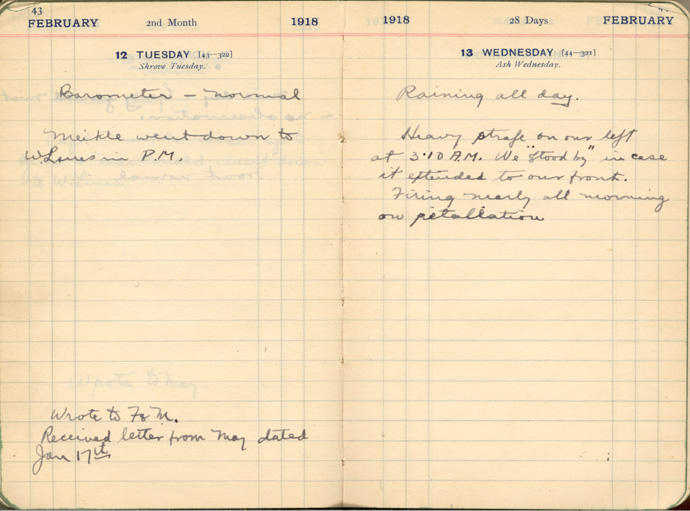 43
FEBRUARY 2nd Month 1918
12 TUESDAY [43—322]
Shrove Tuesday.
Barometer — normal
Meikle went down to
W. Lines in P.M.
Wrote to May
Wrote to F & M.
Received letter from May dated
Jan 17th
1918 28 Days FEBRUARY
13 WEDNESDAY [44—321]
Ash Wednesday.
Raining all day.
Heavy strafe on our left
at 3.10 A.M. We "stood by" in case
it extended to our front.
Firing nearly all morning
on retallation